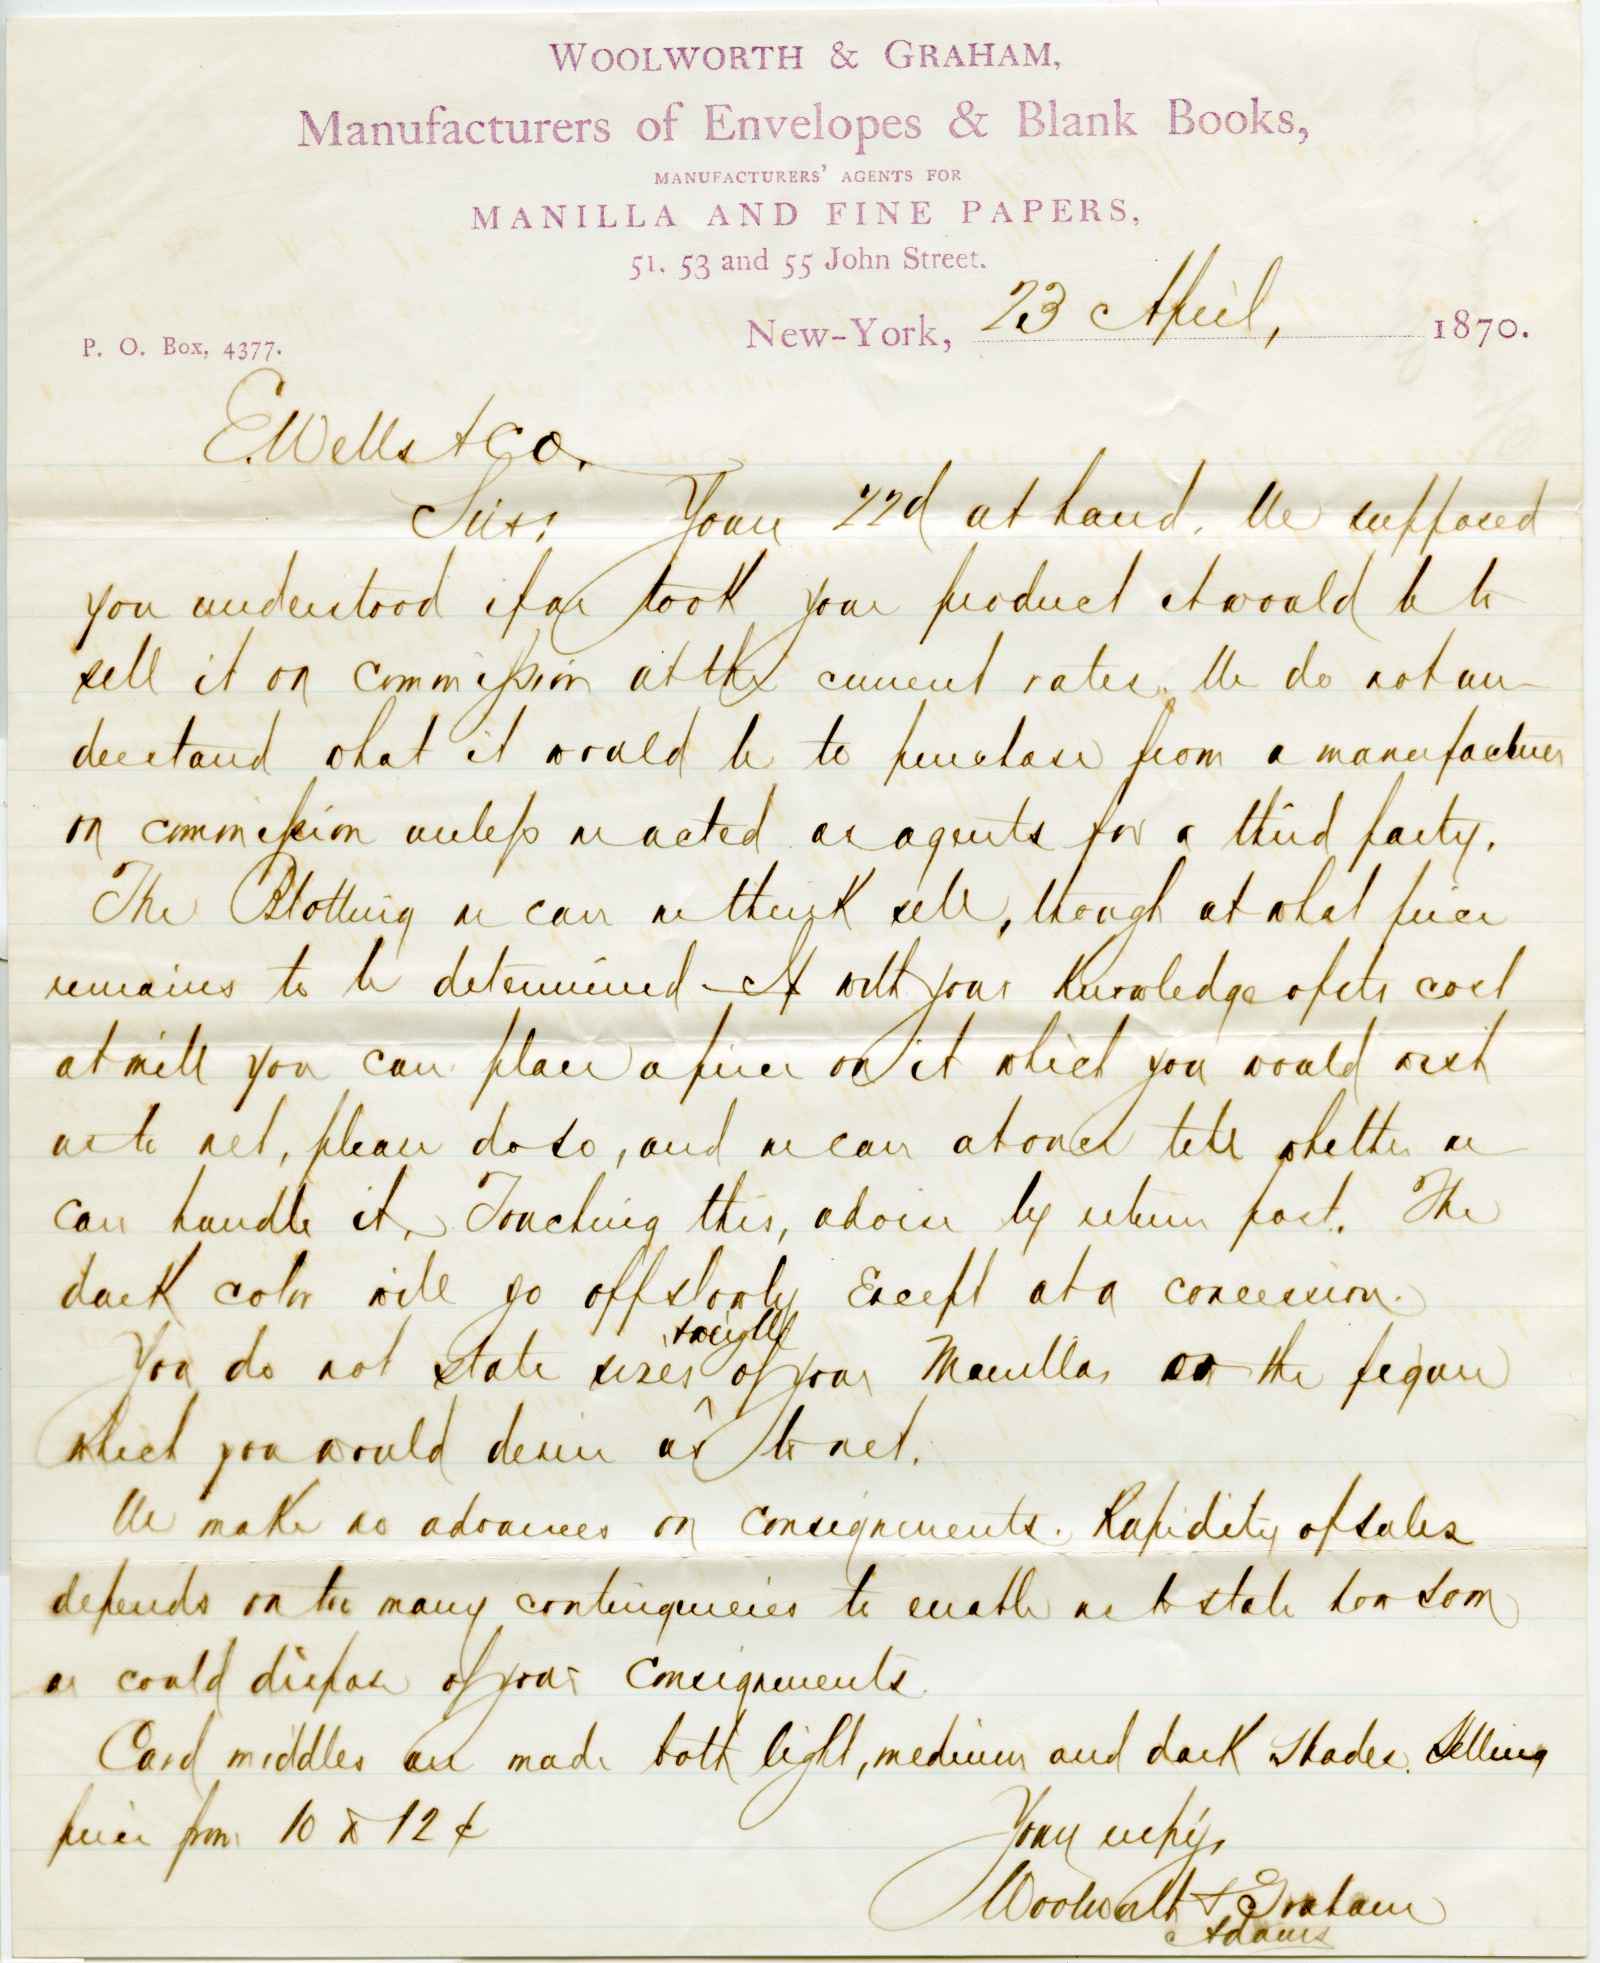 WOOLWORTH & GRAHAM,
Manufacturers of Envelopes & Blank Books,
MANUFACTURERS' AGENTS FOR
MANILLA AND FINE PAPERS,
51, 53 and 55 John Street.
New-York, 23 April, 1870.
P. O. Box, 4377.
E. Wells & Co.
Sirs: Your 22d at hand. We supposed
you understood if we took your product it would be to
sell it on commission at the current rates. We do not un-
derstand what it would be to purchase from a manufacturer
on commission unless we acted as agents for a third party.
The Blotting we can we think sell, though at what price
remains to be determined - If with your knowledge of its cost
at mill you can place a price on it which you would wish
us to net, please do so, and we can at once tell whether we
can handle it. Touching this, advise by return post. The
dark color will go off slowly except at a concession.
& weight
You do not state sizes of your Manillas or the figure
which you would desire us to net.
We make no advances on consignments. Rapidity of sales
depends on too many contingencies to enable us to state how soon
we could dispose of your consignments.
Card middles are made both light, medium and dark shades. Selling
price from 10 to 12 ¢
Yours respy,
Woolworth & Graham
Adams